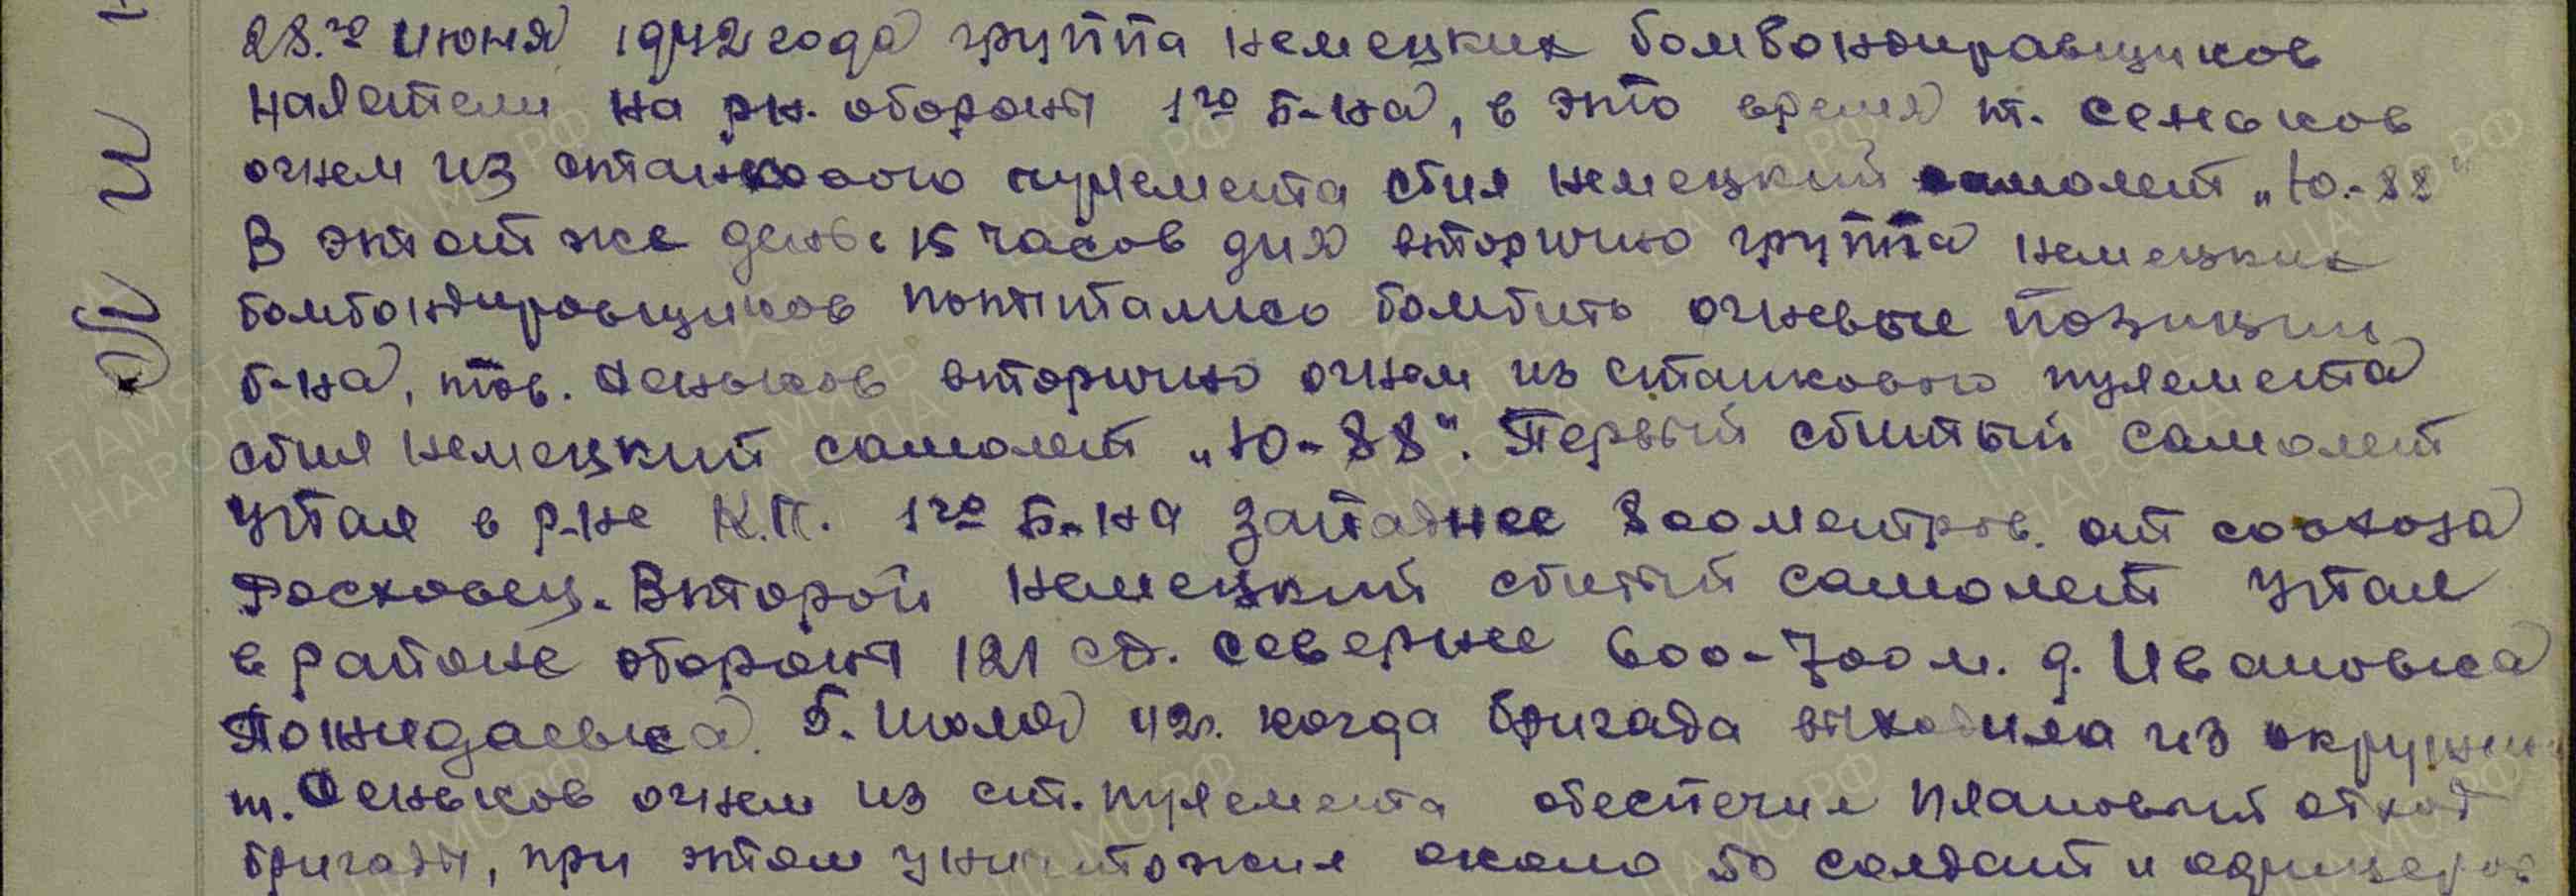 28.го июня 1942 года группа немецких бомбондировщиков
налетели на рн. обороны 1го б-на, в это время т. Сеньков
огнем из станкового пулемета сбил немецкий самолет „Ю.-88"
В этот же день в 15 часов дня вторично группа немецких
бомбондировщиков попытались бомбить огневые позиции
б-на, тов. Сеньков вторично огнем из станкового пулемета
сбил немецкий самолет „Ю-88". Первый сбитый самолет
упал в р-не К.П. 1го б-на западнее 800 метров. от совхоза
Росховец. Второй немецкий сбитый самолет упал
в районе обороны 121 сд. севернее 600-700 м. д. Ивановка
Пожидаевка. 5. июля 42г. когда бригада выходила из окружен
т. Сеньков огнем из ст. пулемета обеспечил плановый отход
бригады, при этом уничтожил около 50 солдат и офицеров